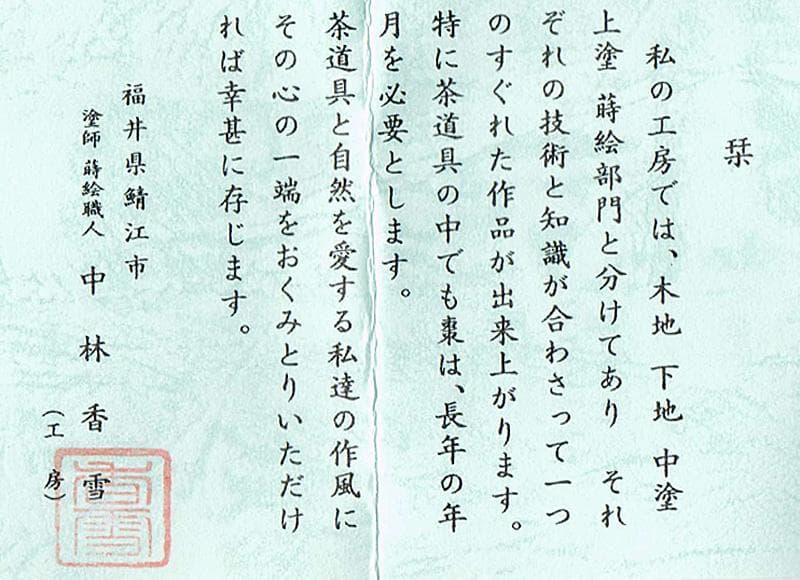 栞
私の工房では、木地 下地 中塗
上塗 蒔絵部門と分けてあり それ
ぞれの技術と知識が合わさって一つ
のすぐれた作品が出来上がります。
特に茶道具の中でも棗は、長年の年
月を必要とします。
茶道具と自然を愛する私達の作風に
その心の一端をおくみとりいただけ
れば幸甚に存じます。
福井県鯖江市
塗師 蒔絵職人 中林香雪
(工房)